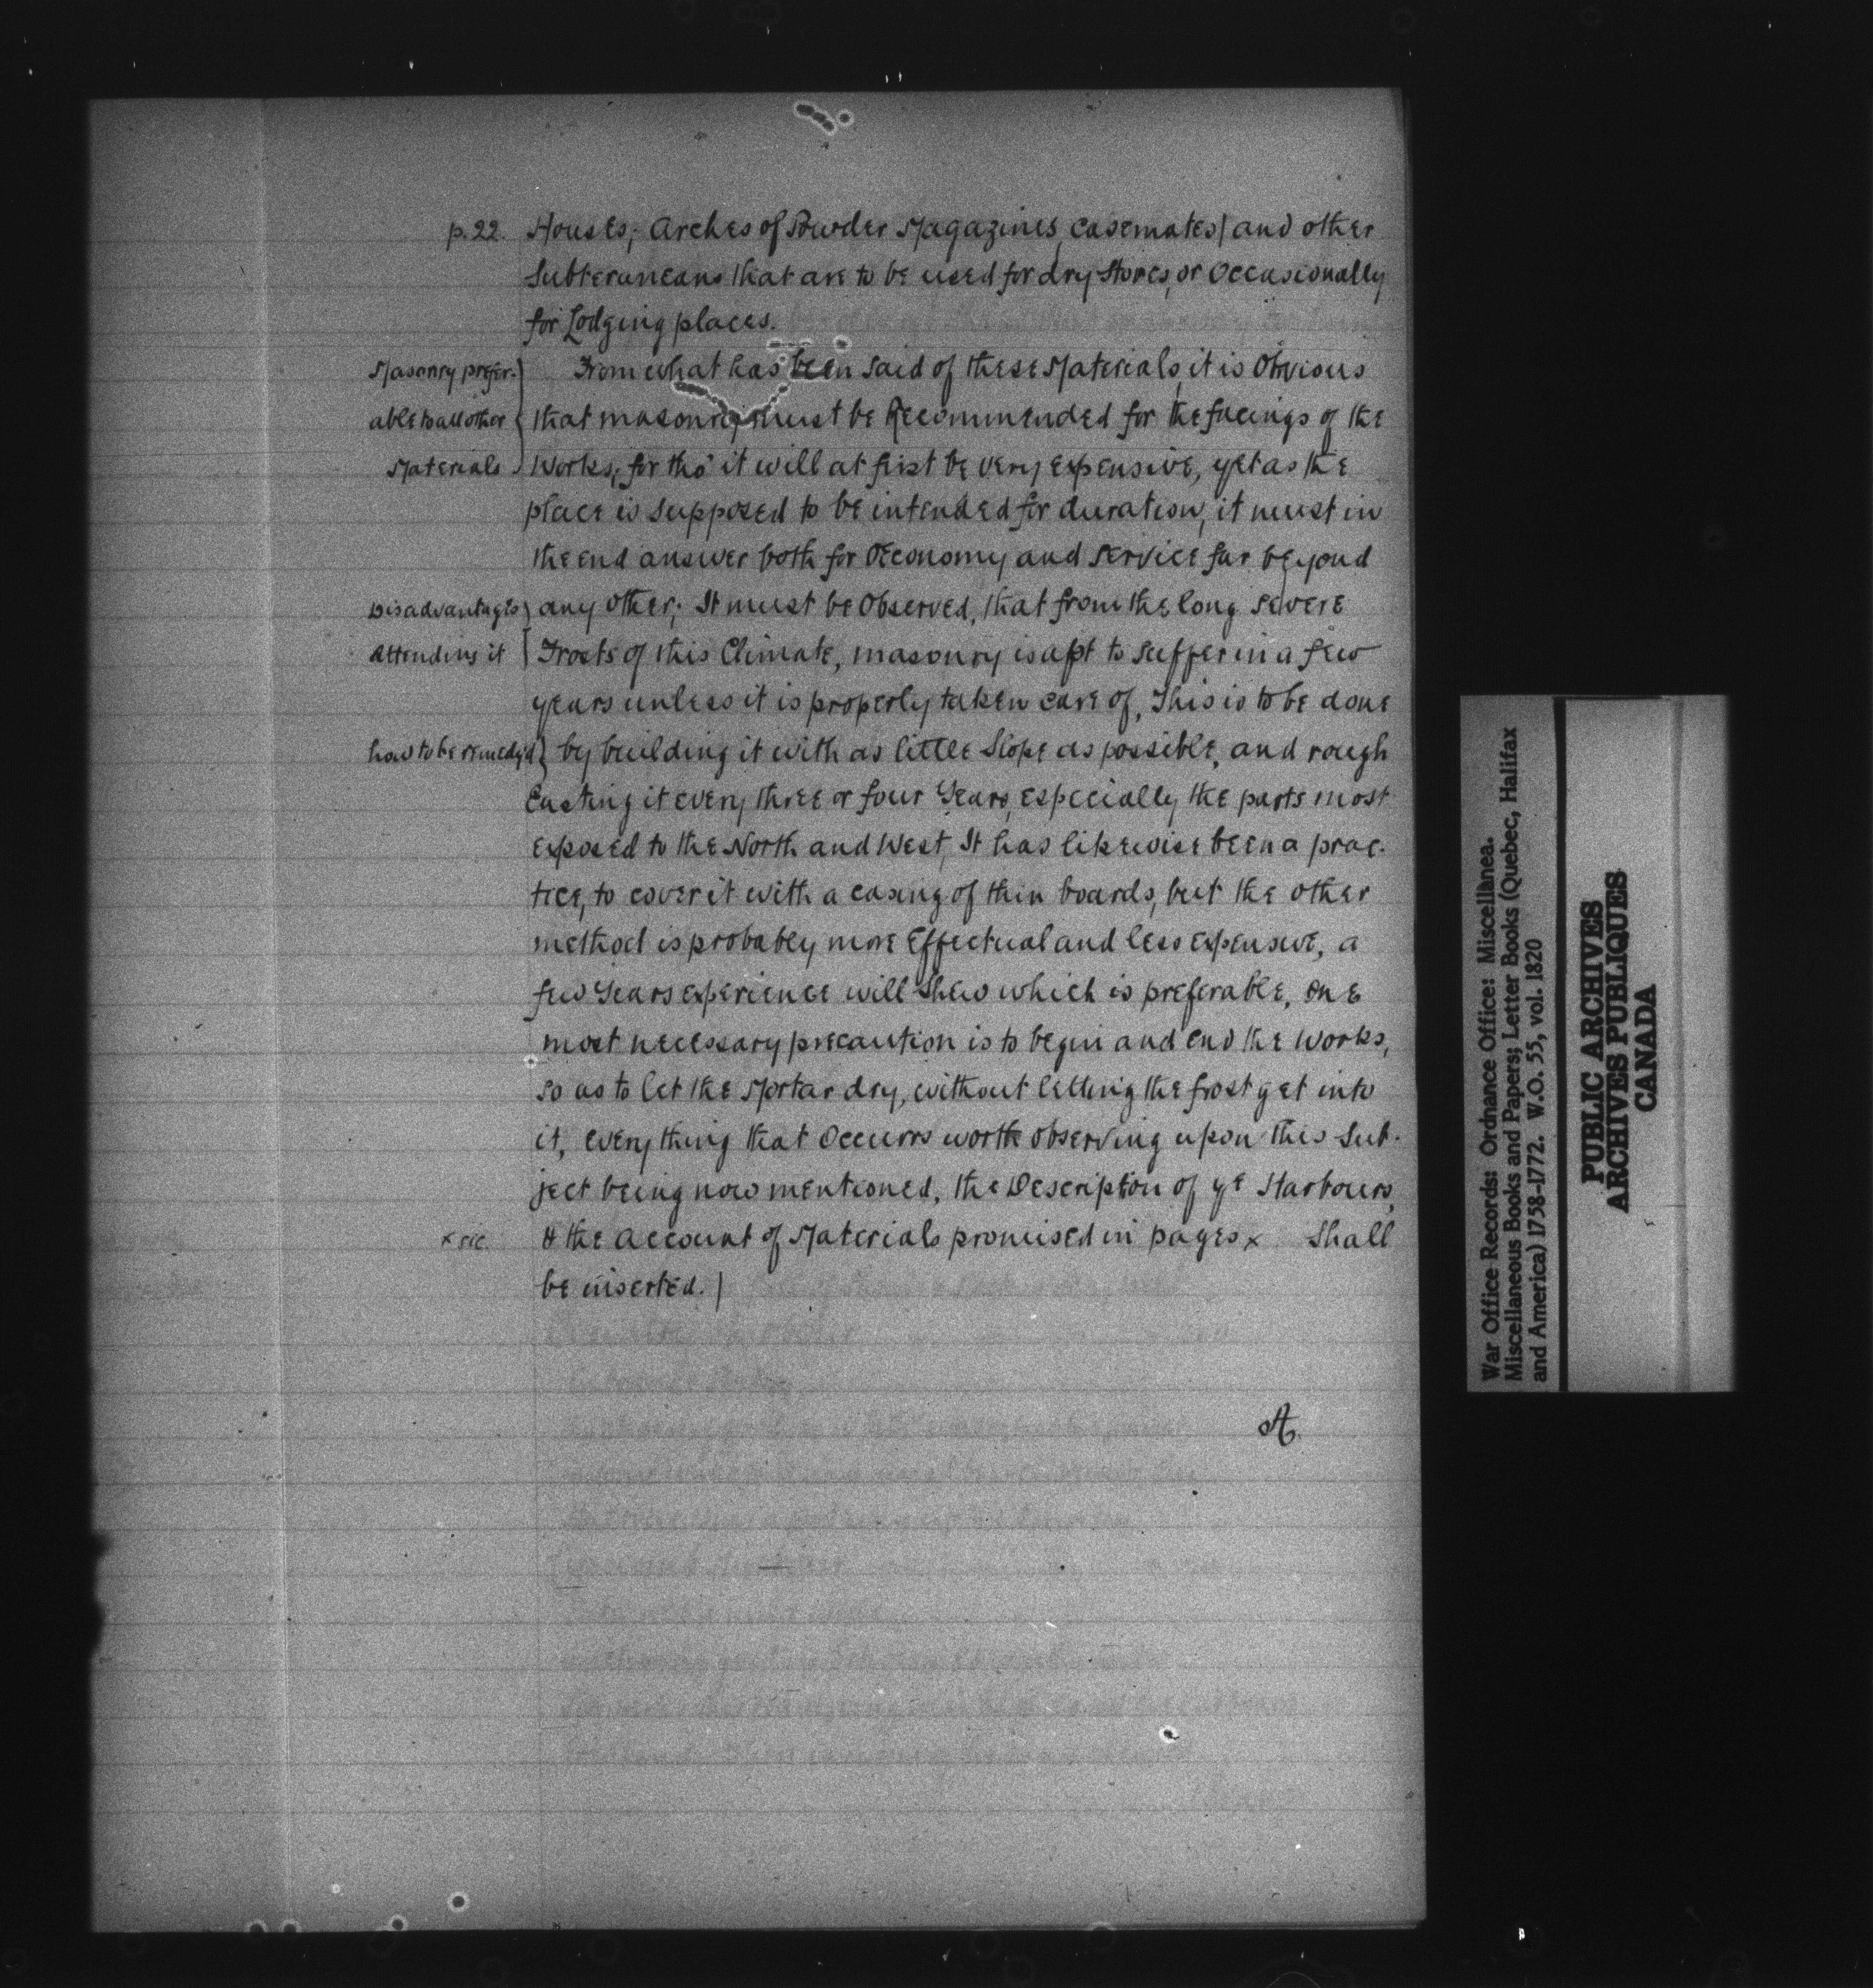 p.22. Houses; Arches of Powder Magazines, casemates/ and other
Subteraneans that are to be used for dry Stores, or Occasionally
for Lodging places.
Masonry prefer-} From what has been said of these Materials, it is Obvious
able to all other { that masonry must be Recommended for the facings of the
Materials } Works; for tho' it will at first be very Expensive, yet as the
place is supposed to be intended for duration, it must in
the end answer both for Oeconomy and service far beyond
Disadvantages } any other; It must be Observed, that from the long severe
Attending it { Frosts of this Climate, masonry is apt to suffer in a few
years unless it is properly taken care of, This is to be done
how to be remedy'd } by building it with as little Slope as possible, and rough
Casting it every three or four Years, especially the parts most
Exposed to the North and West, It has likewise been a prac-
tice, to cover it with a casing of thin boards, but the other
method is probably more Effectual and less expensive, a
few Years experience will Shew which is preferable, One
most necessary precaution is to begin and end the Works,
so as to let the Mortar dry, without letting the frost get into
it, everything that Occurrs worth observing upon this Sub-
ject being now mentioned, the Description of ye Harbours,
x sic. & the Account of Materials promised in pages x Shall
be inserted. /
A.
War Office Records: Ordnance Office: Miscellanea.
Miscellaneous Books and Papers; Letter Books (Quebec, Halifax
and America) 1758-1772. W.O. 55, vol. 1820
PUBLIC ARCHIVES
ARCHIVES PUBLIQUES
CANADA